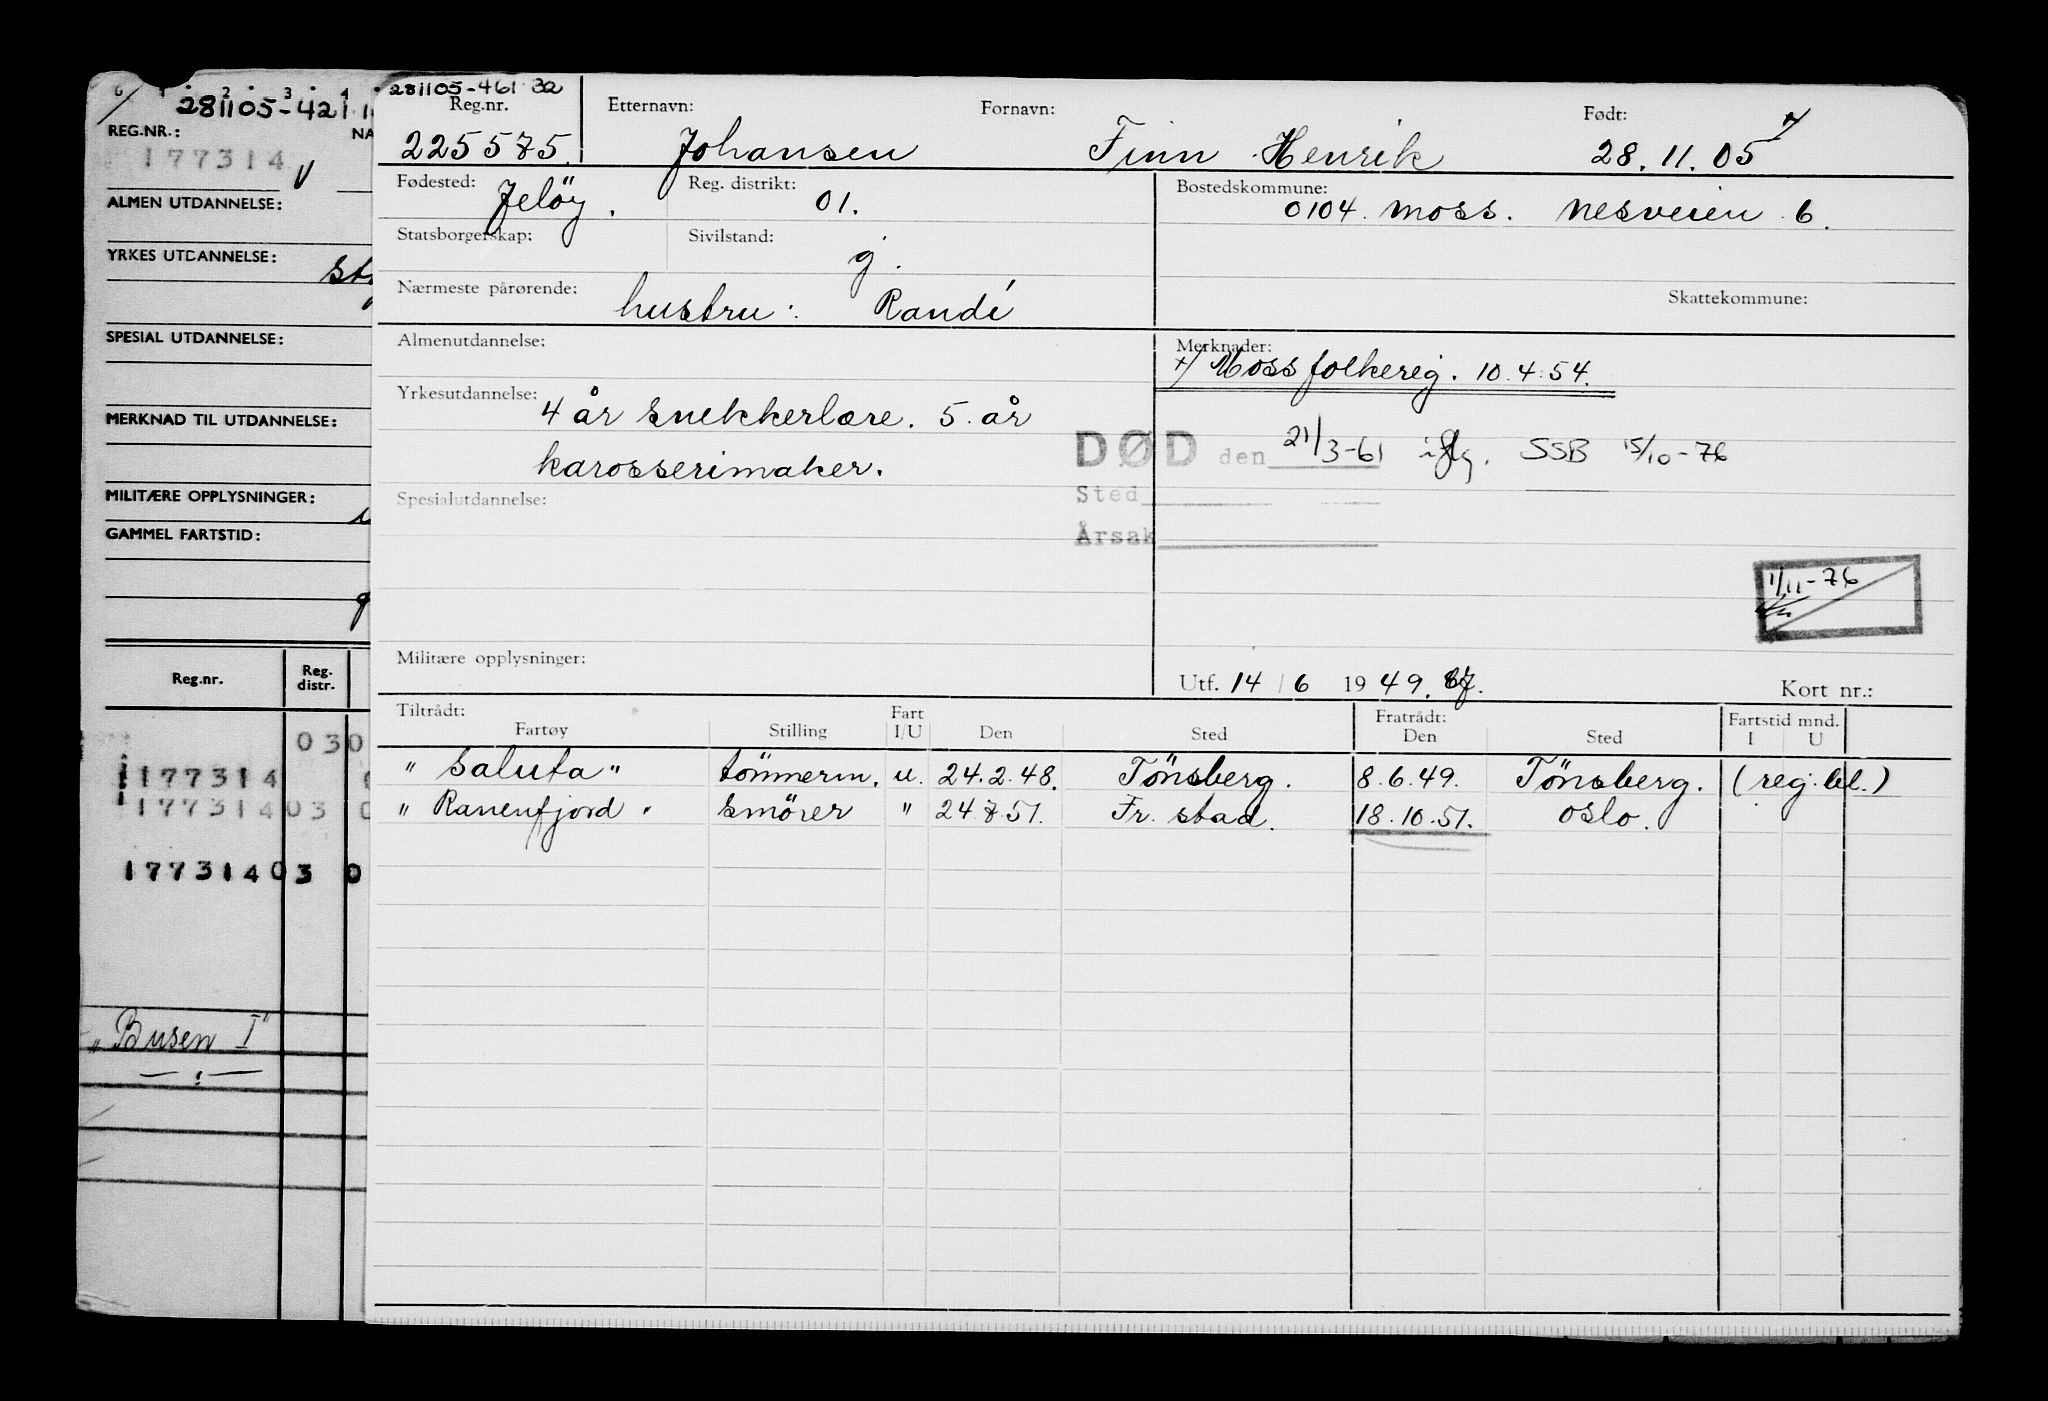 281105-421
REG.NR.:
NA
177314
V
ALMEN UTDANNELSE:
YRKES UTDANNELSE:
SPESIAL UTDANNELSE:
MERKNAD TIL UTDANNELSE:
MILITÆRE OPPLYSNINGER:
GAMMEL FARTSTID:
Reg.nr. Reg. distr.
030
177314
177314 03
177314 03 0
„Busen I"
281105-461 32
Reg.nr. Etternavn: Fornavn: Født:
225575. Johansen Finn Henrik 28.11.05
Fødested: Jeløy. Reg. distrikt: 01. Bostedskommune: 0104 Moss. Nesveien 6.
Statsborgerskap: Sivilstand: g.
Nærmeste pårørende: hustru: Randi Skattekommune:
Almenutdannelse: Merknader:
+/ Moss folkereg. 10.4.54.
Yrkesutdannelse: 4 år snekkerlære. 5 år
karosserimaker.
DØD den 21/3-61 iflg. SSB 15/10-76
Spesialutdannelse: Sted
Årsak
1/11-76
Militære opplysninger: Utf. 14/6 1949. Kort nr.:
Tiltrådt: Fratrådt: Fartstid mnd.
Fartøy Stilling Fart I/U Den Sted Den Sted I U
"Saluta" tömmerm. u. 24.2.48. Tönsberg. 8.6.49. Tönsberg. (reg. bl.)
"Ranenfjord" smörer " 24.8.51. Fr. stad. 18.10.51. Oslo.